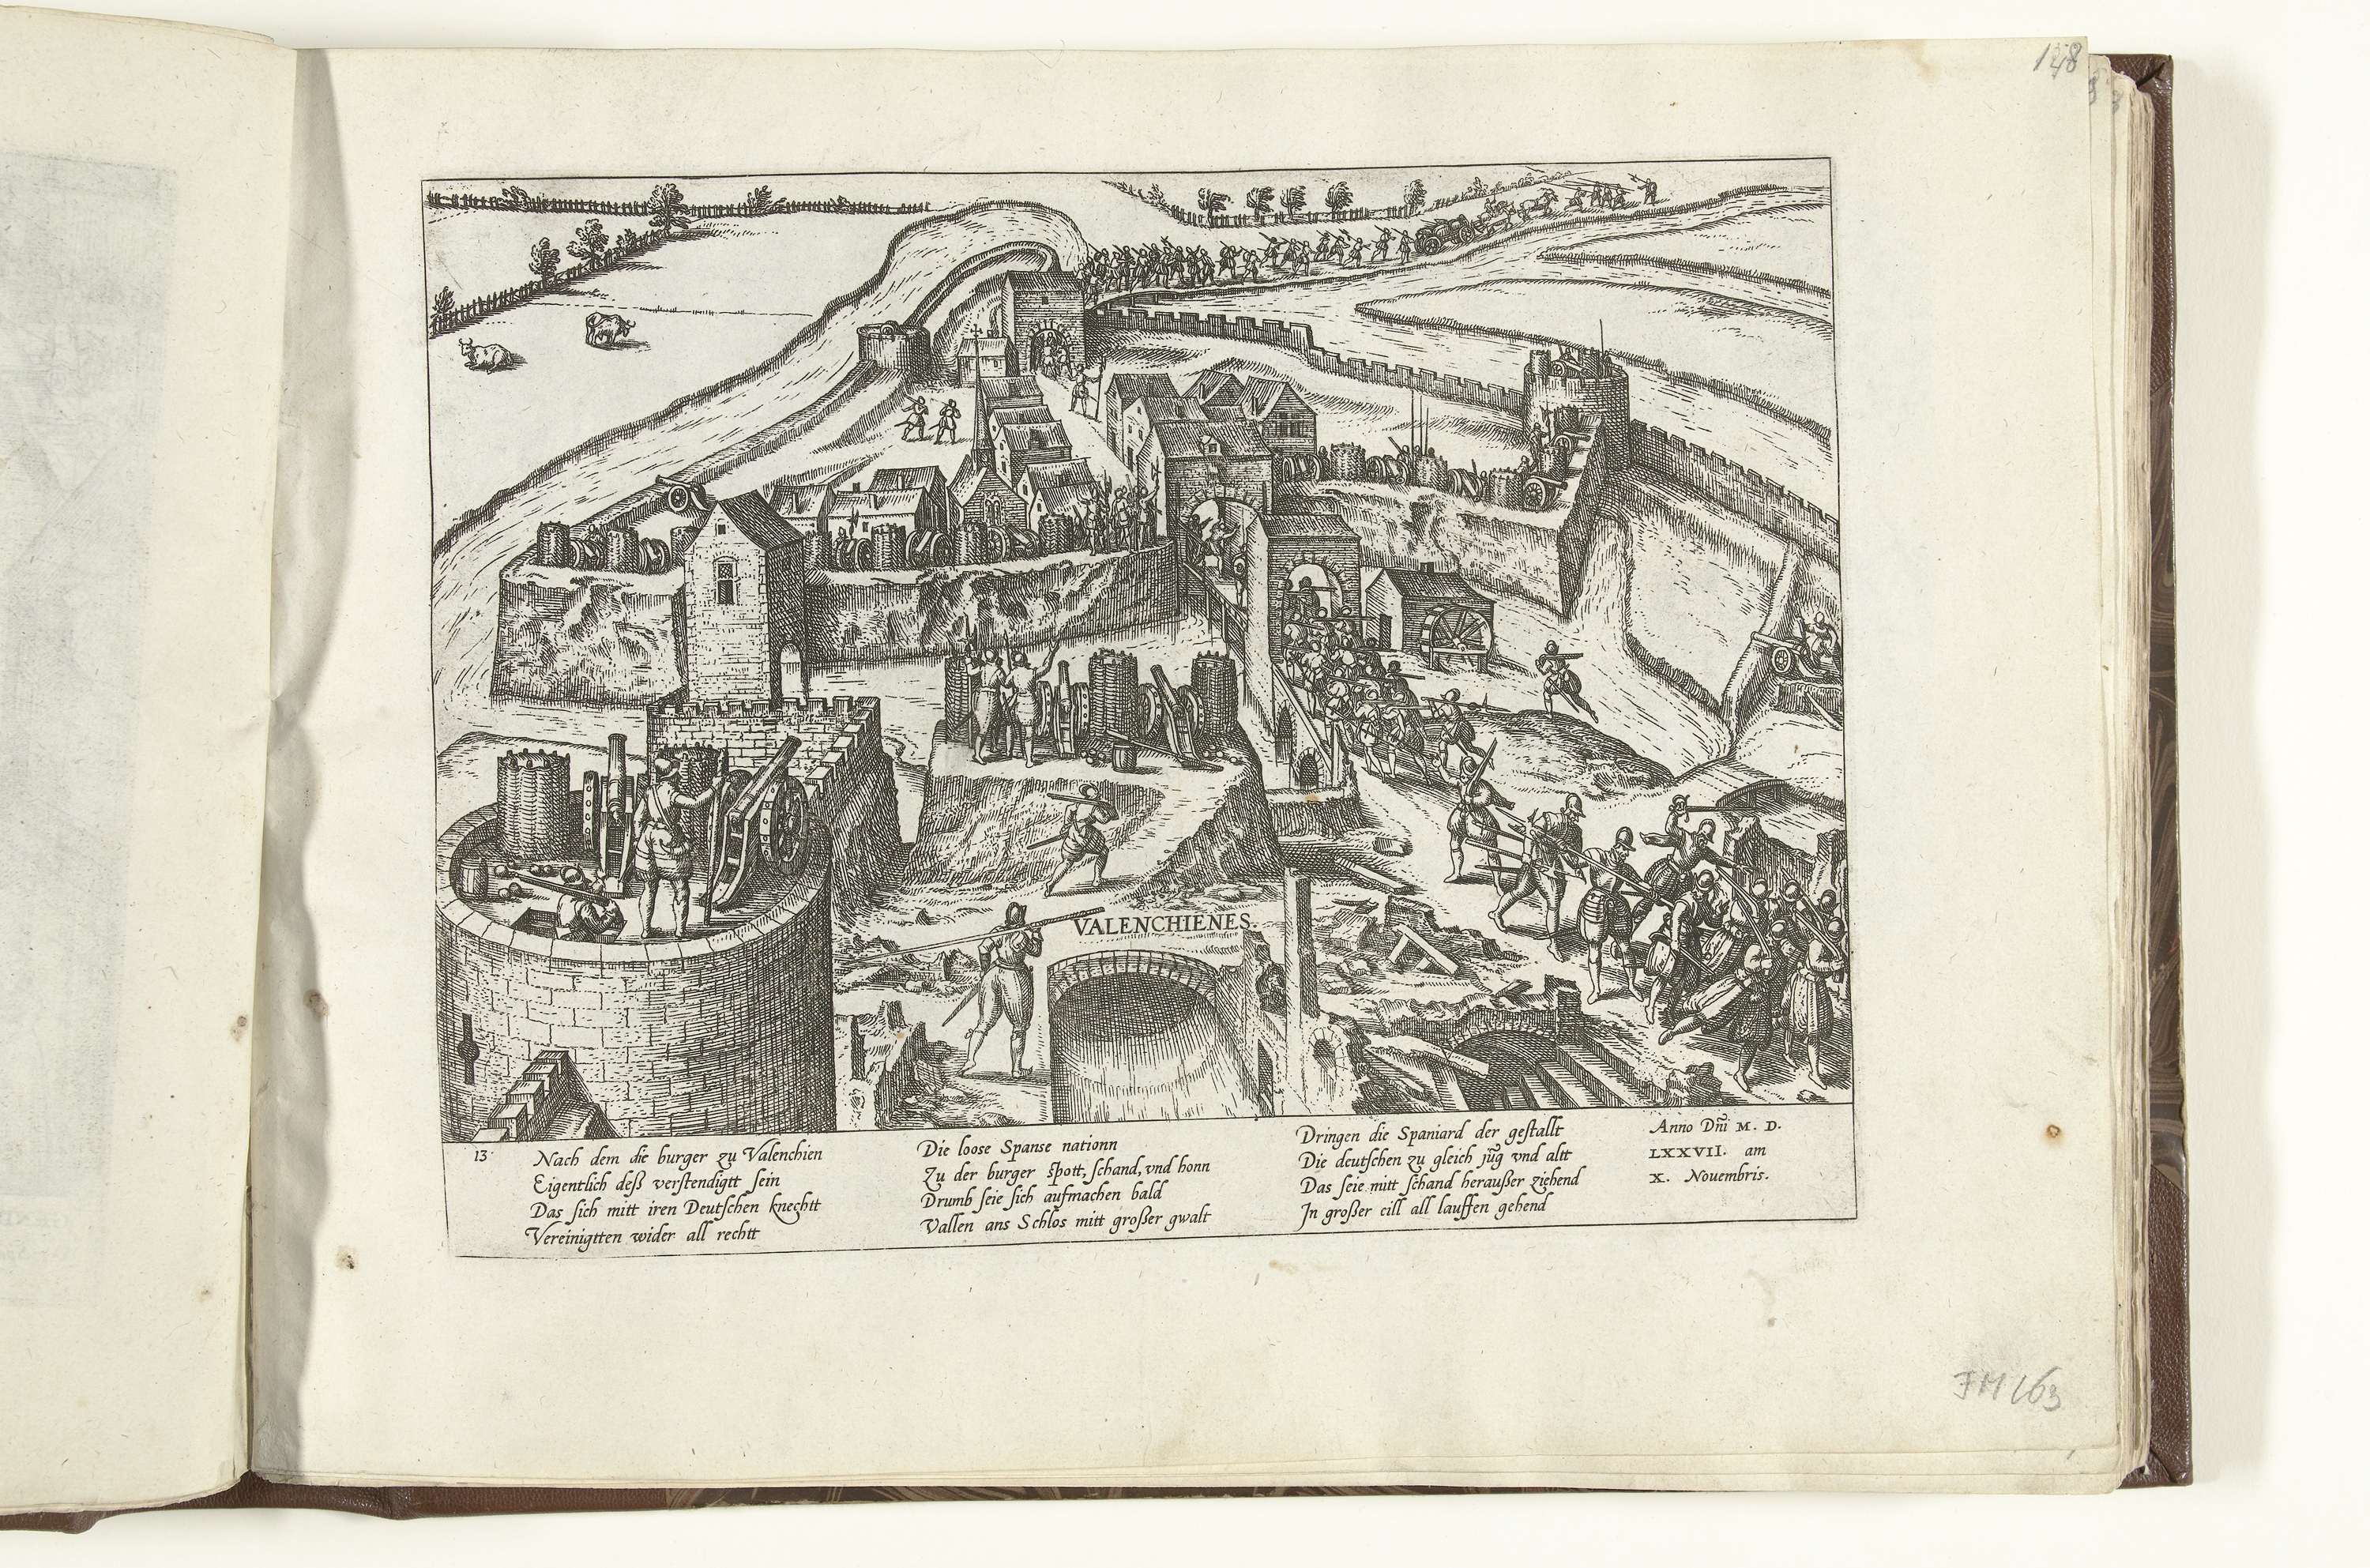 148
VALENCHIENES.
13
Nach dem die burger zu Valenchien
Eigentlich deß verstendigtt sein
Das sich mitt iren Deutschen knechtt
Vereinigtten wider all rechtt
Die loose Spanse nationn
Zu der burger spott, schand, vnd honn
Drumb seie sich aufmachen bald
Vallen ans Schlos mitt großer gwalt
Dringen die Spaniard der gestallt
Die deutschen zu gleich jũg vnd altt
Das seie mitt schand heraußer ziehend
In großer eill all lauffen gehend
Anno Dñi M. D.
LXXVII. am
X. Nouembris.
FM 663